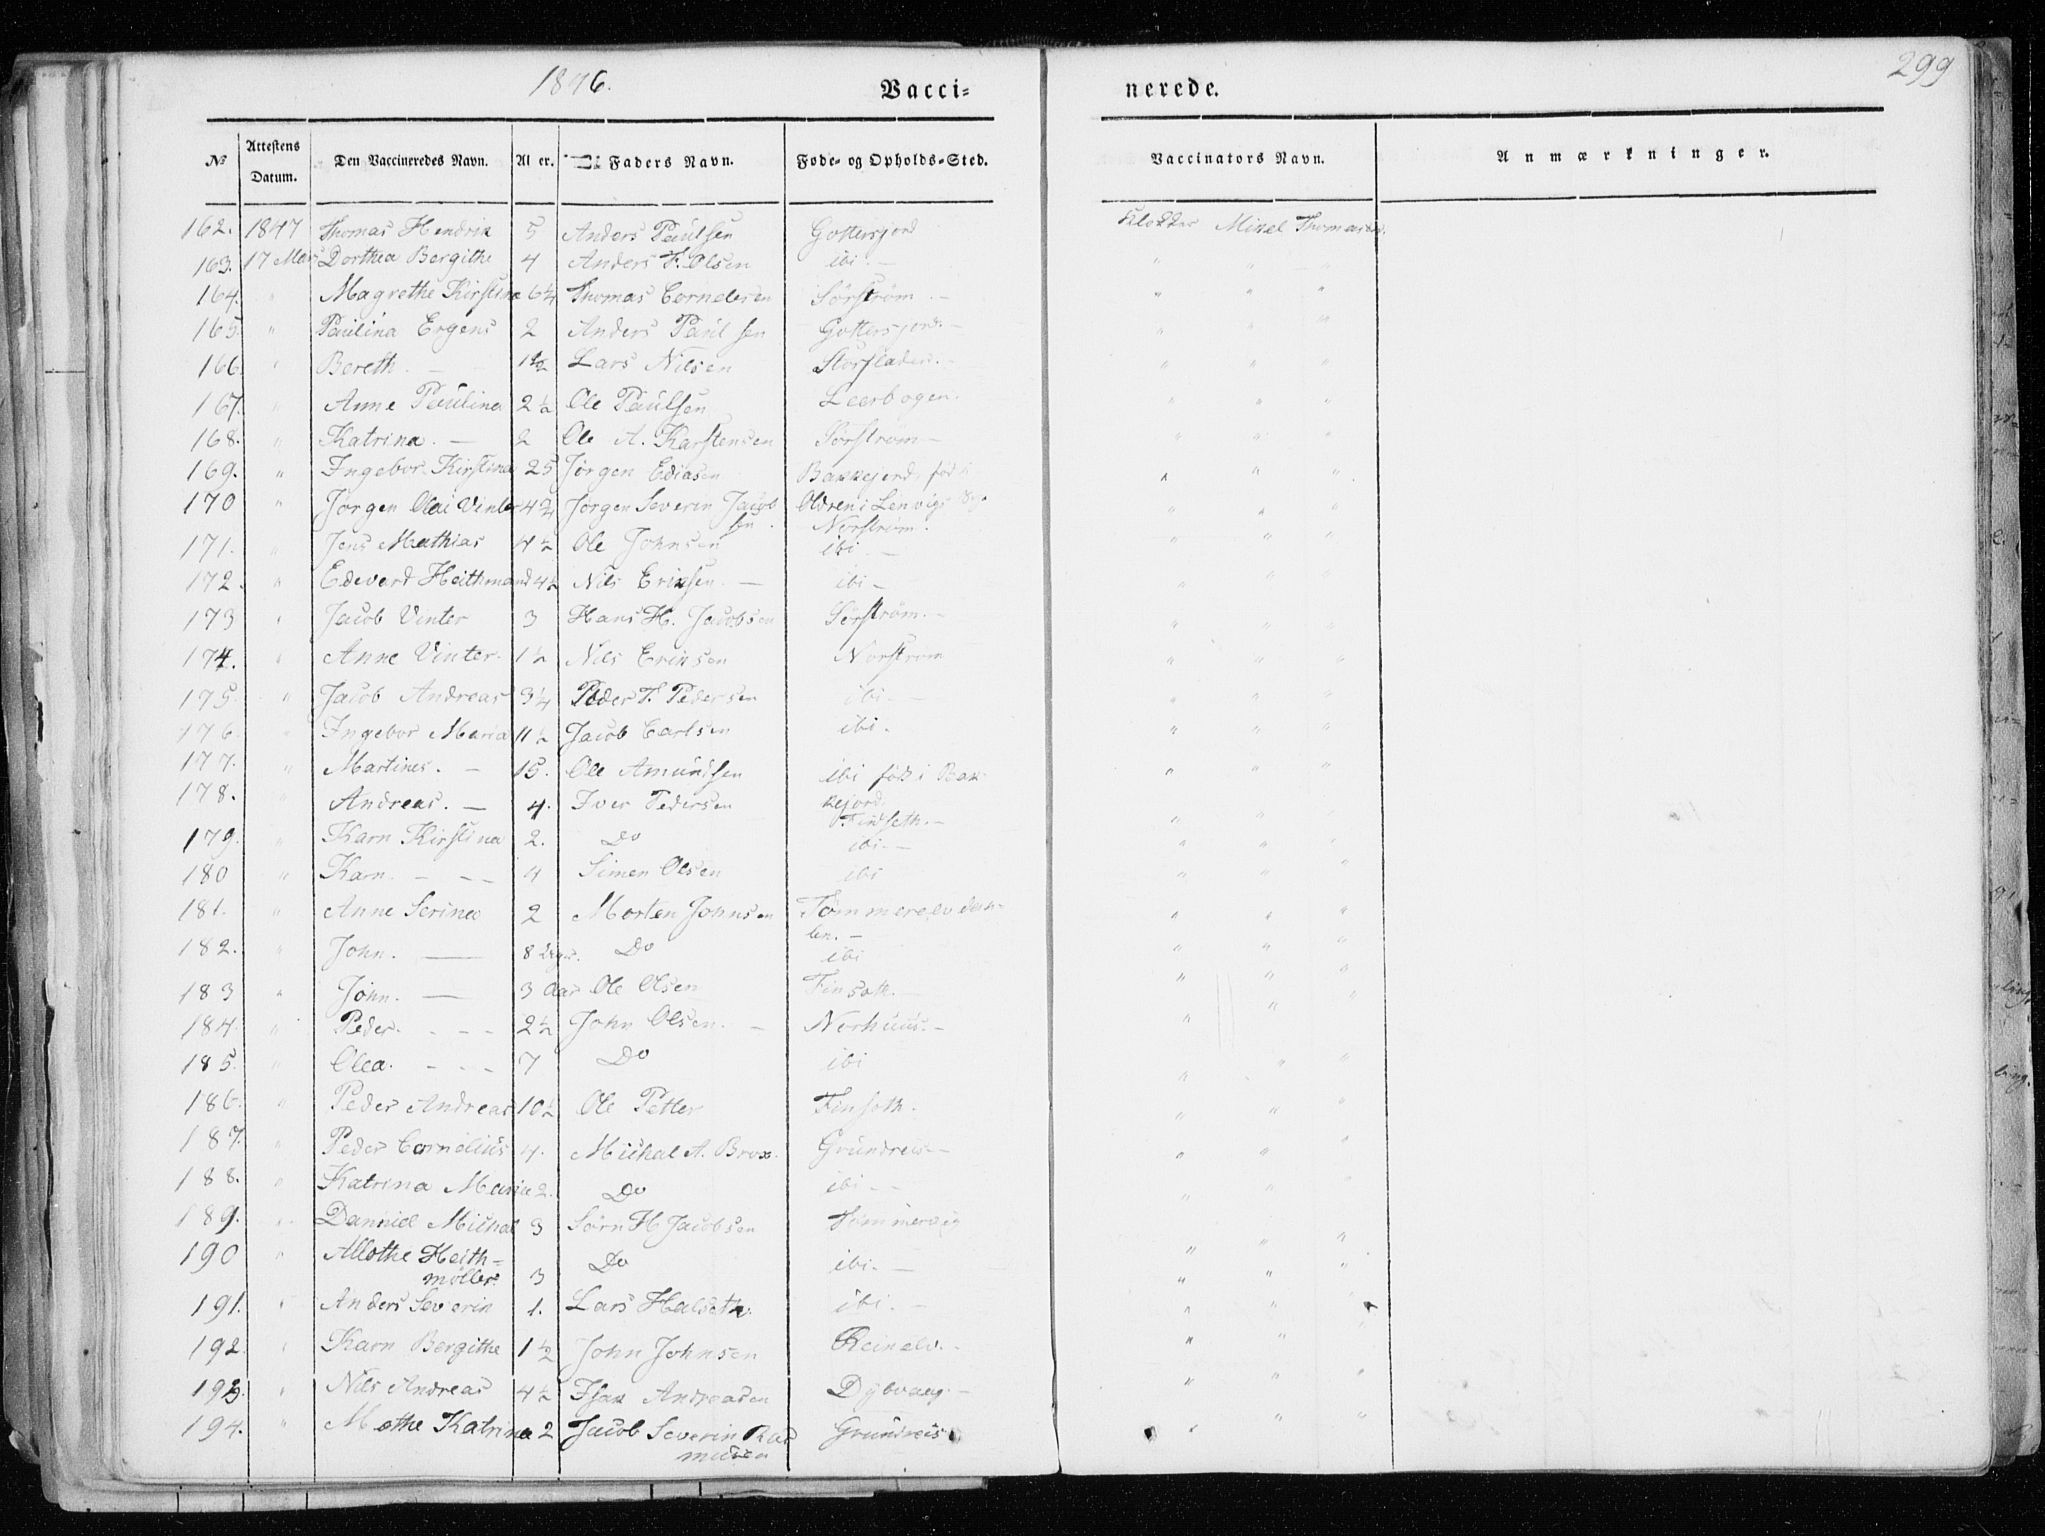 1846. Vacci= nerede. 299
№ Attestens Datum. Den Vaccineredes Navn. Al er. Faders Navn. Føde- og Opholds-Sted. Vaccinators Navn. Anmærkninger.
162. 1847 Thomas Hendrik 5 Anders Paulsen Gottersjord Klokker Mikel Thomassen
163. 17 Mars Dorthea Bergithe 4 Anders F. Olsen ibi. — " " "
164. " Magrethe Kirstina 6¼ Thomas Cornelesen Sørstrøm. — " " "
165. " Paulina Ergens 2 Anders Paulsen Gottersjord. — " " "
166. " Bereth. — 1½ Lars Nilsen Storsladen. — " " "
167. " Anne Paulina 2½ Ole Paulsen Leerbogen. " " "
168. " Katrina. — 2 Ole A. Karstensen Sørstrøm — " " "
169. " Ingebor Kirstina 25 Jørgen Ediasen Bakkejord, föd i " " "
170 " Jørgen Olai Vinter 4¾ Jørgen Severin Jacob Oldren i Lenvigs " " "
sen. Norstrøm.
171. " Jens Mathias 4½ Ole Johnsen ibi. — " " "
172. " Edevard Heithmand 4½ Nils Eriksen. — ibi — " " "
173 " Jacob Vinter 3 Hans H. Jacobsen Sørstrøm. — " " "
174. " Anne Vinter. 1½ Nils Eriksen Norstrøm " " "
175. " Jacob Andreas 3¼ Peder F. Pedersen ibi. — " " "
176. " Ingebor Maria 11½ Jacob Carlsen ibi. " " "
177. " Martines. — 15. Ole Amundsen ibi föd i Bak " " "
178. " Andreas. — 4. Iver Pedersen kejord.
Findseth. — " "
179. " Karn Kirstina 2. Do ibi. — " " "
180 " Karn. — — — 4 Simen Olsen ibi " " "
181. " Anne Serine 2 Morten Johnsen Tømmerelvdah- " " "
len. —
182. " John. — 8 Uger. Do ibi " " "
183 " John. — 3 Aar Ole Olsen Finsoth. — " " "
184. " Peder. — — — 2½ John Olsen. — Norhuus. — " " "
185. " Olea. — — — 7 Do ibi " " "
186. " Peder Andreas 10½ Ole Petter Finsoth. " " "
187. " Peder Cornelius 4. Michal A. Brox. Grundreis — " " "
188. " Katrina Maria 2. Do ibi — — " " "
189. " Danniel Michal 3 Sørn H Jacobsen Tømmervig " " "
190 " Allethe Heith=
møller. 3 Do ibi. — " " "
191. " Anders Severin 1. Lars Halseth. ibi. — " " "
192. " Karn Bergithe 1½ John Johnsen Reinelv. — " " "
193. " Nils Andreas 4½ Isak Andreasen Dybvaag. — " " "
194. " Methe Katrina 2 Jacob Severin Ras Grundreis " " "
musen